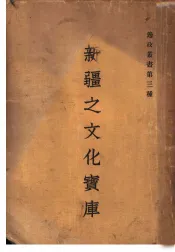 邊政叢書第三種
新疆之文化寶庫